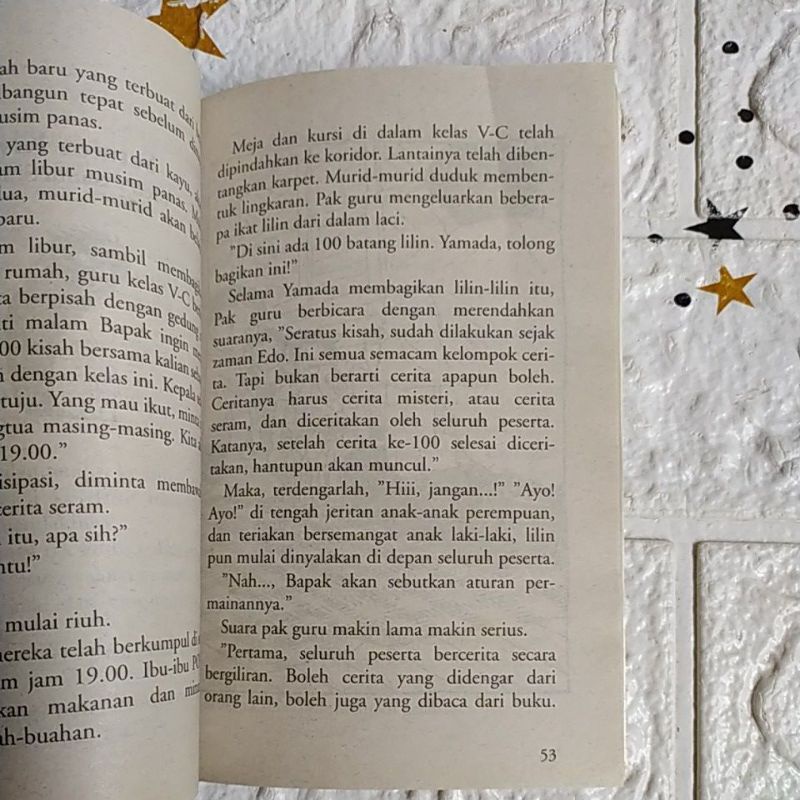 ah baru yang terbuat dari
bangun tepat sebelum
usim panas.
yang terbuat dari kayu,
am libur musim panas.
lua, murid-murid akan
baru.
m libur, sambil membagi
rumah, guru kelas V-C
ta berpisah dengan gedung
ti malam Bapak ingin
00 kisah bersama kalian
n dengan kelas ini. Kepala
tuju. Yang mau ikut,
gtua masing-masing. Kita
19.00.”
isipasi, diminta
cerita seram.
itu, apa sih?”
ntu!”
mulai riuh.
mereka telah berkumpul di
m jam 19.00. Ibu-ibu
kan makanan dan
ah-buahan.
Meja dan kursi di dalam kelas V-C telah
dipindahkan ke koridor. Lantainya telah diben-
tangkan karpet. Murid-murid duduk memben-
tuk lingkaran. Pak guru mengeluarkan bebera-
pa ikat lilin dari dalam laci.
”Di sini ada 100 batang lilin. Yamada, tolong
bagikan ini!”
Selama Yamada membagikan lilin-lilin itu,
Pak guru berbicara dengan merendahkan
suaranya, ”Seratus kisah, sudah dilakukan sejak
zaman Edo. Ini semua semacam kelompok ceri-
ta. Tapi bukan berarti cerita apapun boleh.
Ceritanya harus cerita misteri, atau cerita
seram, dan diceritakan oleh seluruh peserta.
Katanya, setelah cerita ke-100 selesai diceri-
takan, hantupun akan muncul.”
Maka, terdengarlah, ”Hiii, jangan...!” ”Ayo!
Ayo!” di tengah jeritan anak-anak perempuan,
dan teriakan bersemangat anak laki-laki, lilin
pun mulai dinyalakan di depan seluruh peserta.
”Nah..., Bapak akan sebutkan aturan per-
mainannya.”
Suara pak guru makin lama makin serius.
”Pertama, seluruh peserta bercerita secara
bergiliran. Boleh cerita yang didengar dari
orang lain, boleh juga yang dibaca dari buku.
53